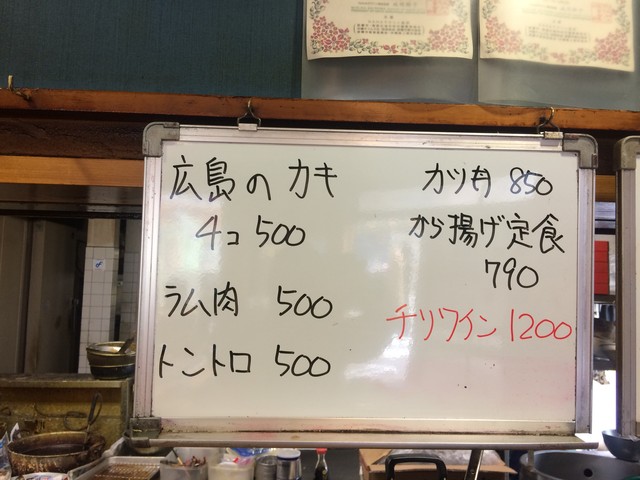 広島のカキ
4コ 500
ラム肉 500
トントロ 500
カツ丼 850
から揚げ定食
790
チリワイン 1200